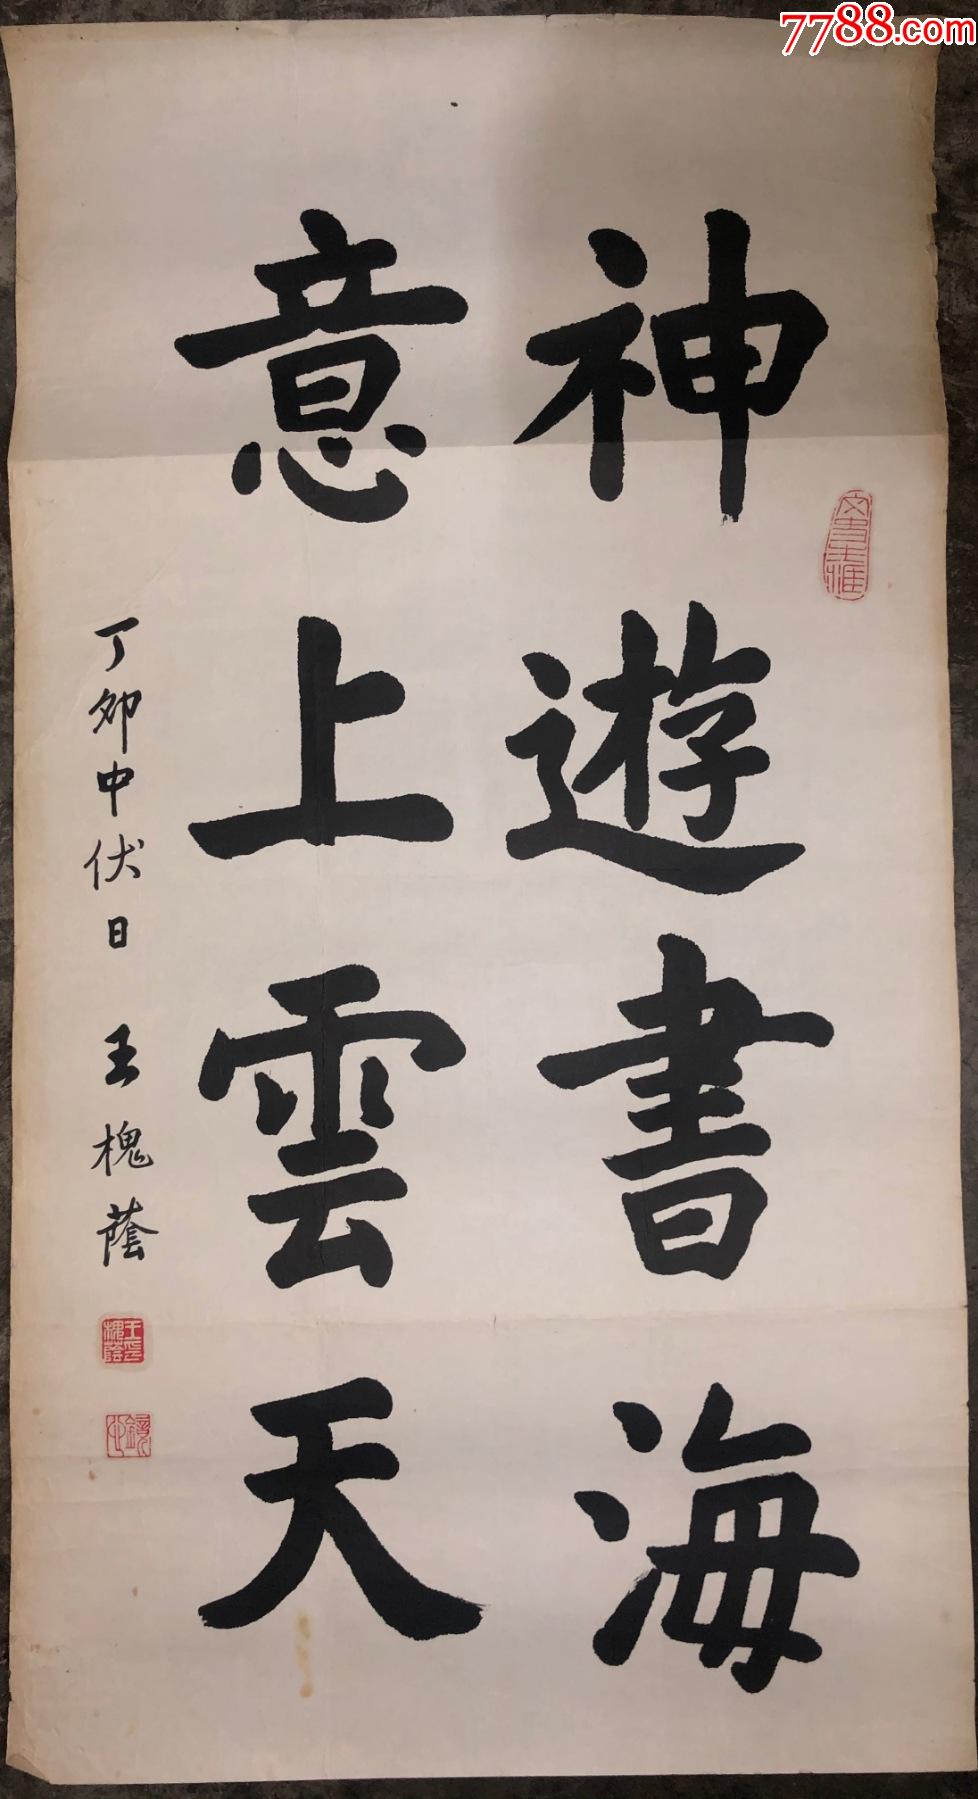 7788.com
神遊書海
意上雲天
丁卯中伏日 王槐蔭
王槐蔭印